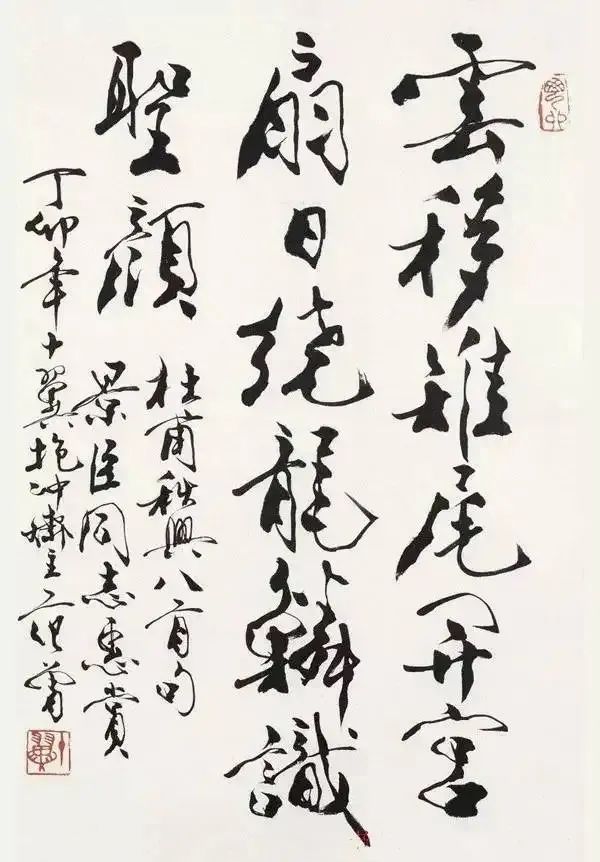 雲移雉尾開宮
扇日繞龍鱗識
聖顏
杜甫秋興八首句
景臣同志惠賞
丁卯年十翼抱沖齋主范曾
十翼